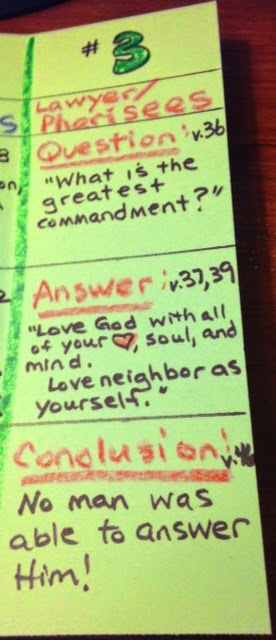 # 3
Lawyer/
Pharisees
Question: v.36
"What is the
greatest
commandment?"
Answer: v.37,39
"Love God with all
of your ❤, soul, and
mind.
Love neighbor as
yourself."
Conclusion: v.46
No man was
able to answer
Him!